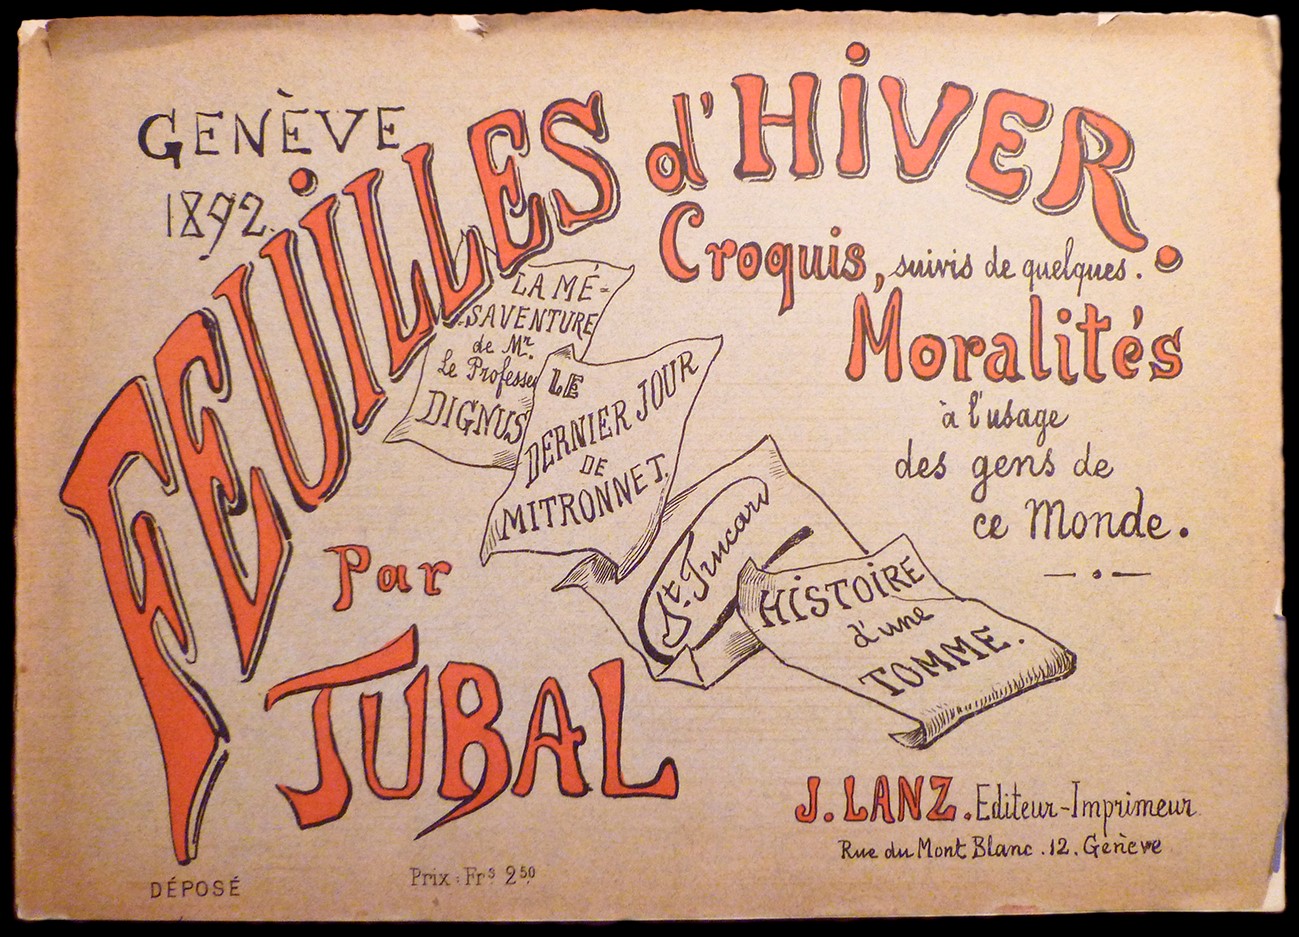 GENÈVE
1892.
FEUILLES d'HIVER.
Croquis, suivis de quelques.
Moralités
à l'usage
des gens de
ce Monde.
LA MÉ-
SAVENTURE
de Mr.
Le Professeu
DIGNUS
LE
DERNIER JOUR
DE
MITRONNET.
St. Trucard
HISTOIRE
d'une
TOMME.
Par
JUBAL
J. LANZ. Editeur-Imprimeur
Rue du Mont Blanc. 12. Genève
DÉPOSÉ
Prix: Frs 2 50